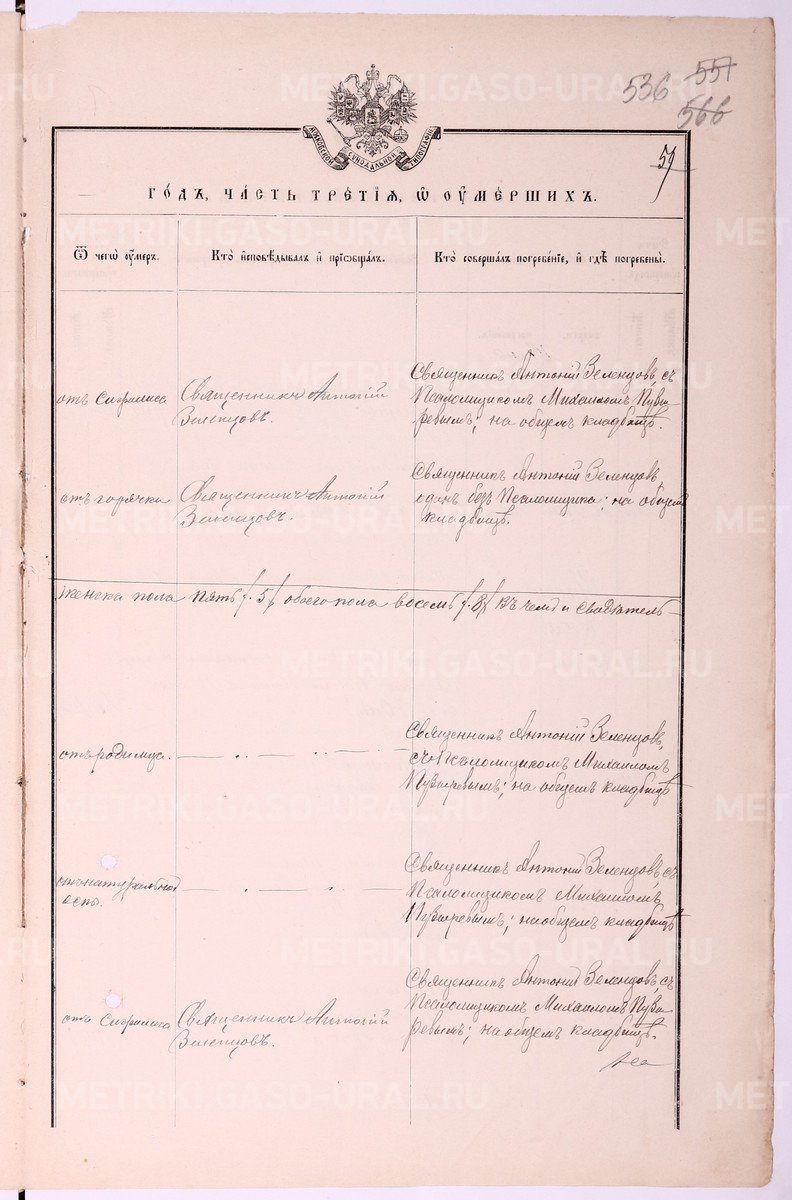 536 551
566
МОСКОВСКОЙ СѴНОДАЛЬНОЙ ТИПОГРАФІИ
59
ГО́ДЪ, ЧА́СТЬ ТРЕ́ТІѦ, Ѽ ОУМЕ́РШИХЪ.
Ѿ чегѡ̀ оу҆́меръ.
Кто̀ и҆сповѣ́дывалъ и҆ прїѡбща́лъ.
Кто̀ соверша́лъ погребе́нїе, и҆ гдѣ̀ погребены̀.
отъ Сифилиса
Священникъ Антоній
Зеленцовъ.
Священникъ Антоній Зеленцовъ, съ
Псаломщикомъ Михаиломъ Пузы-
ревымъ; на общемъ кладбищѣ.
отъ горячки
Священникъ Антоній
Зеленцовъ.
Священникъ Антоній Зеленцовъ
одинъ безъ Псаломщика; на общемъ
кладбищѣ.
женска пола пять /. 5 /. обоего пола восемь /. 8 /. Въ чемъ и свидѣтель-
отъ родимца.
Священникъ Антоній Зеленцовъ,
съ Псаломщикомъ Михаиломъ
Пузыревымъ; на общемъ кладбищѣ
отъ натуральной
оспы.
Священникъ Антоній Зеленцовъ, съ
Псаломщикомъ Михаиломъ
Пузыревымъ; на общемъ кладбищѣ
отъ Сифилиса
Священникъ Антоній
Зеленцовъ.
Священникъ Антоній Зеленцовъ, съ
Псаломщикомъ Михаиломъ Пузы-
ревымъ; на общемъ кладбищѣ.
METRIKI.GASO-URAL.RU